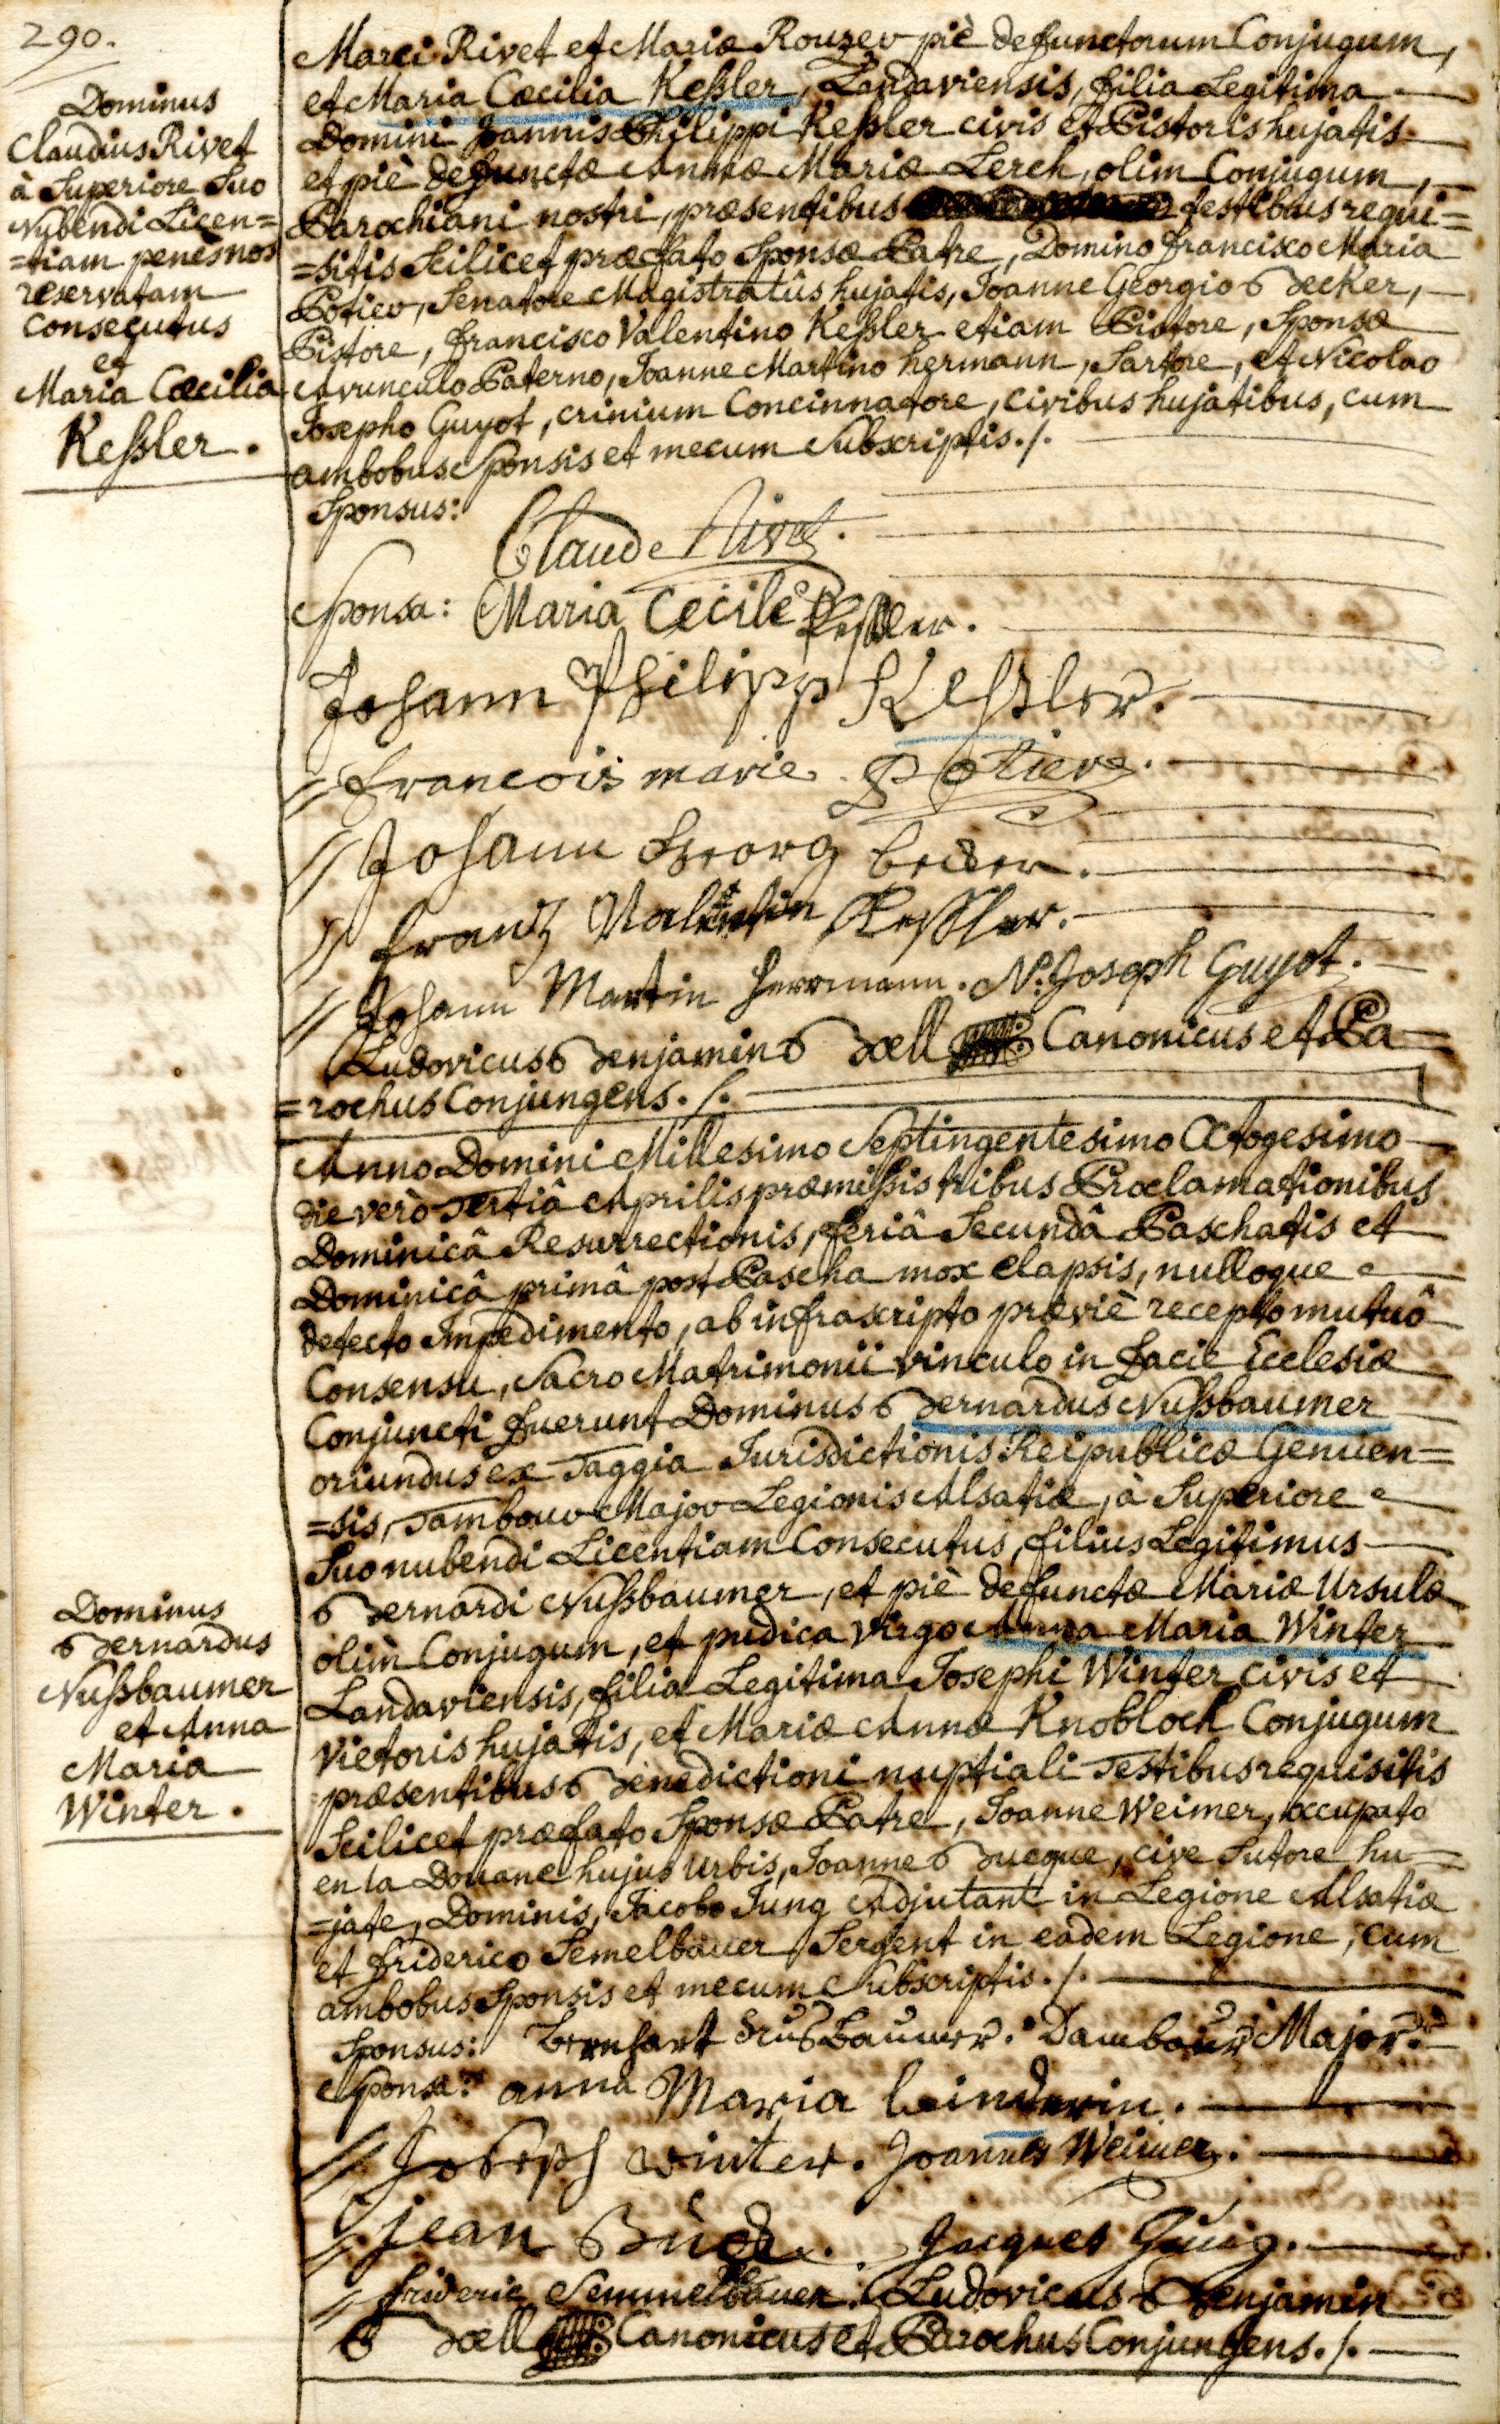 290.
Dominus
Claudius Rivet
à Superiore Suo
Nubendi Licen=
=tiam penès nos
reservatam
Consecutus
et
Maria Cæcilia
Keßler.
Marci Rivet et Mariæ Rouzev piè defunctorum Conjugum,
et Maria Cæcilia Keßler, Landaviensis, filia Legitima
Domini Joannis Philippi Keßler civis et Pistoris hujatis
et piè defunctæ Annæ Mariæ Lerch, olim Conjugum,
Parochiani nostri, præsentibus testibus requi=
=sitis Scilicet præfato Sponsæ Patre, Domino Francisco Maria
Potiev, Senatore Magistratûs hujatis, Joanne Georgio Becker,
Pistore, Francisco Valentino Keßler etiam Pistore, Sponsæ
Avunculo Paterno, Joanne Martino hermann, Sartore, et Nicolao
Josepho Guyot, crinium Concinnatore, civibus hujatibus, cum
ambobus Sponsis et mecum Subscriptis./.
Sponsus:
Claude Rivet.
Sponsa: Maria Cecile Keßler.
Johann Philipp Keßler.
francois marie Potier.
Johann Georg Becker.
Frantz Valentin Keßler.
Johann Martin Herrmann. N. Joseph Guyot.
Ludovicus Benjamin Bœll Canonicus et Pa=
=rochus Conjungens./.
Anno Domini Millesimo Septingentesimo Octogesimo
die verò Tertiâ Aprilis præmißis tribus Proclamationibus
Dominicâ Resurrectionis, feriâ Secundâ Paschatis et
Dominicâ primâ post Pascha mox elapsis, nulloque
detecto Impedimento, ab infrascripto præviè recepto mutuô
Consensu, Sacro Matrimonii vinculo in facie Ecclesiæ
Conjuncti fuerunt Dominus Bernardus Nußbaumer
oriundus ex Taggia Jurisdictionis Reipublicæ Genuen=
=sis, Tambouv Majov Legionis Alsatiæ, à Superiore
Suo nubendi Licentiam Consecutus, filius Legitimus
Bernardi Nußbaumer, et piè defunctæ Mariæ Ursulæ
olim Conjugum, et pudica virgo Anna Maria Winter
Landaviensis, filia Legitima Josephi Winter civis et
vietoris hujatis, et Mariæ Annæ Knobloch Conjugum
præsentibus Benedictioni nuptiali Testibus requisitis
Scilicet præfato Sponsæ Patre, Joanne Weimer, occupato
en la Douane hujus urbis, Joanne Bueque, cive Sutore hu=
=jate, Dominis, Jacobo Jung Adjutant in Legione Alsatiæ
et Friderico Semelbauer Sergent in eadem Legione, cum
ambobus Sponsis et mecum Subscriptis./.
Dominus
Bernardus
Nußbaumer
et Anna
Maria
Winter.
Sponsus: Bernhart Nusbaumer. Dambour Major.
Sponsa: anna Maria Winderin.
Joseph winter. Joannes Weimer.
jean Büch. Jacques Jung.
frideric Semmelbauer. Ludovicus Benjamin
Bœll Canonicus et Parochus Conjungens./.